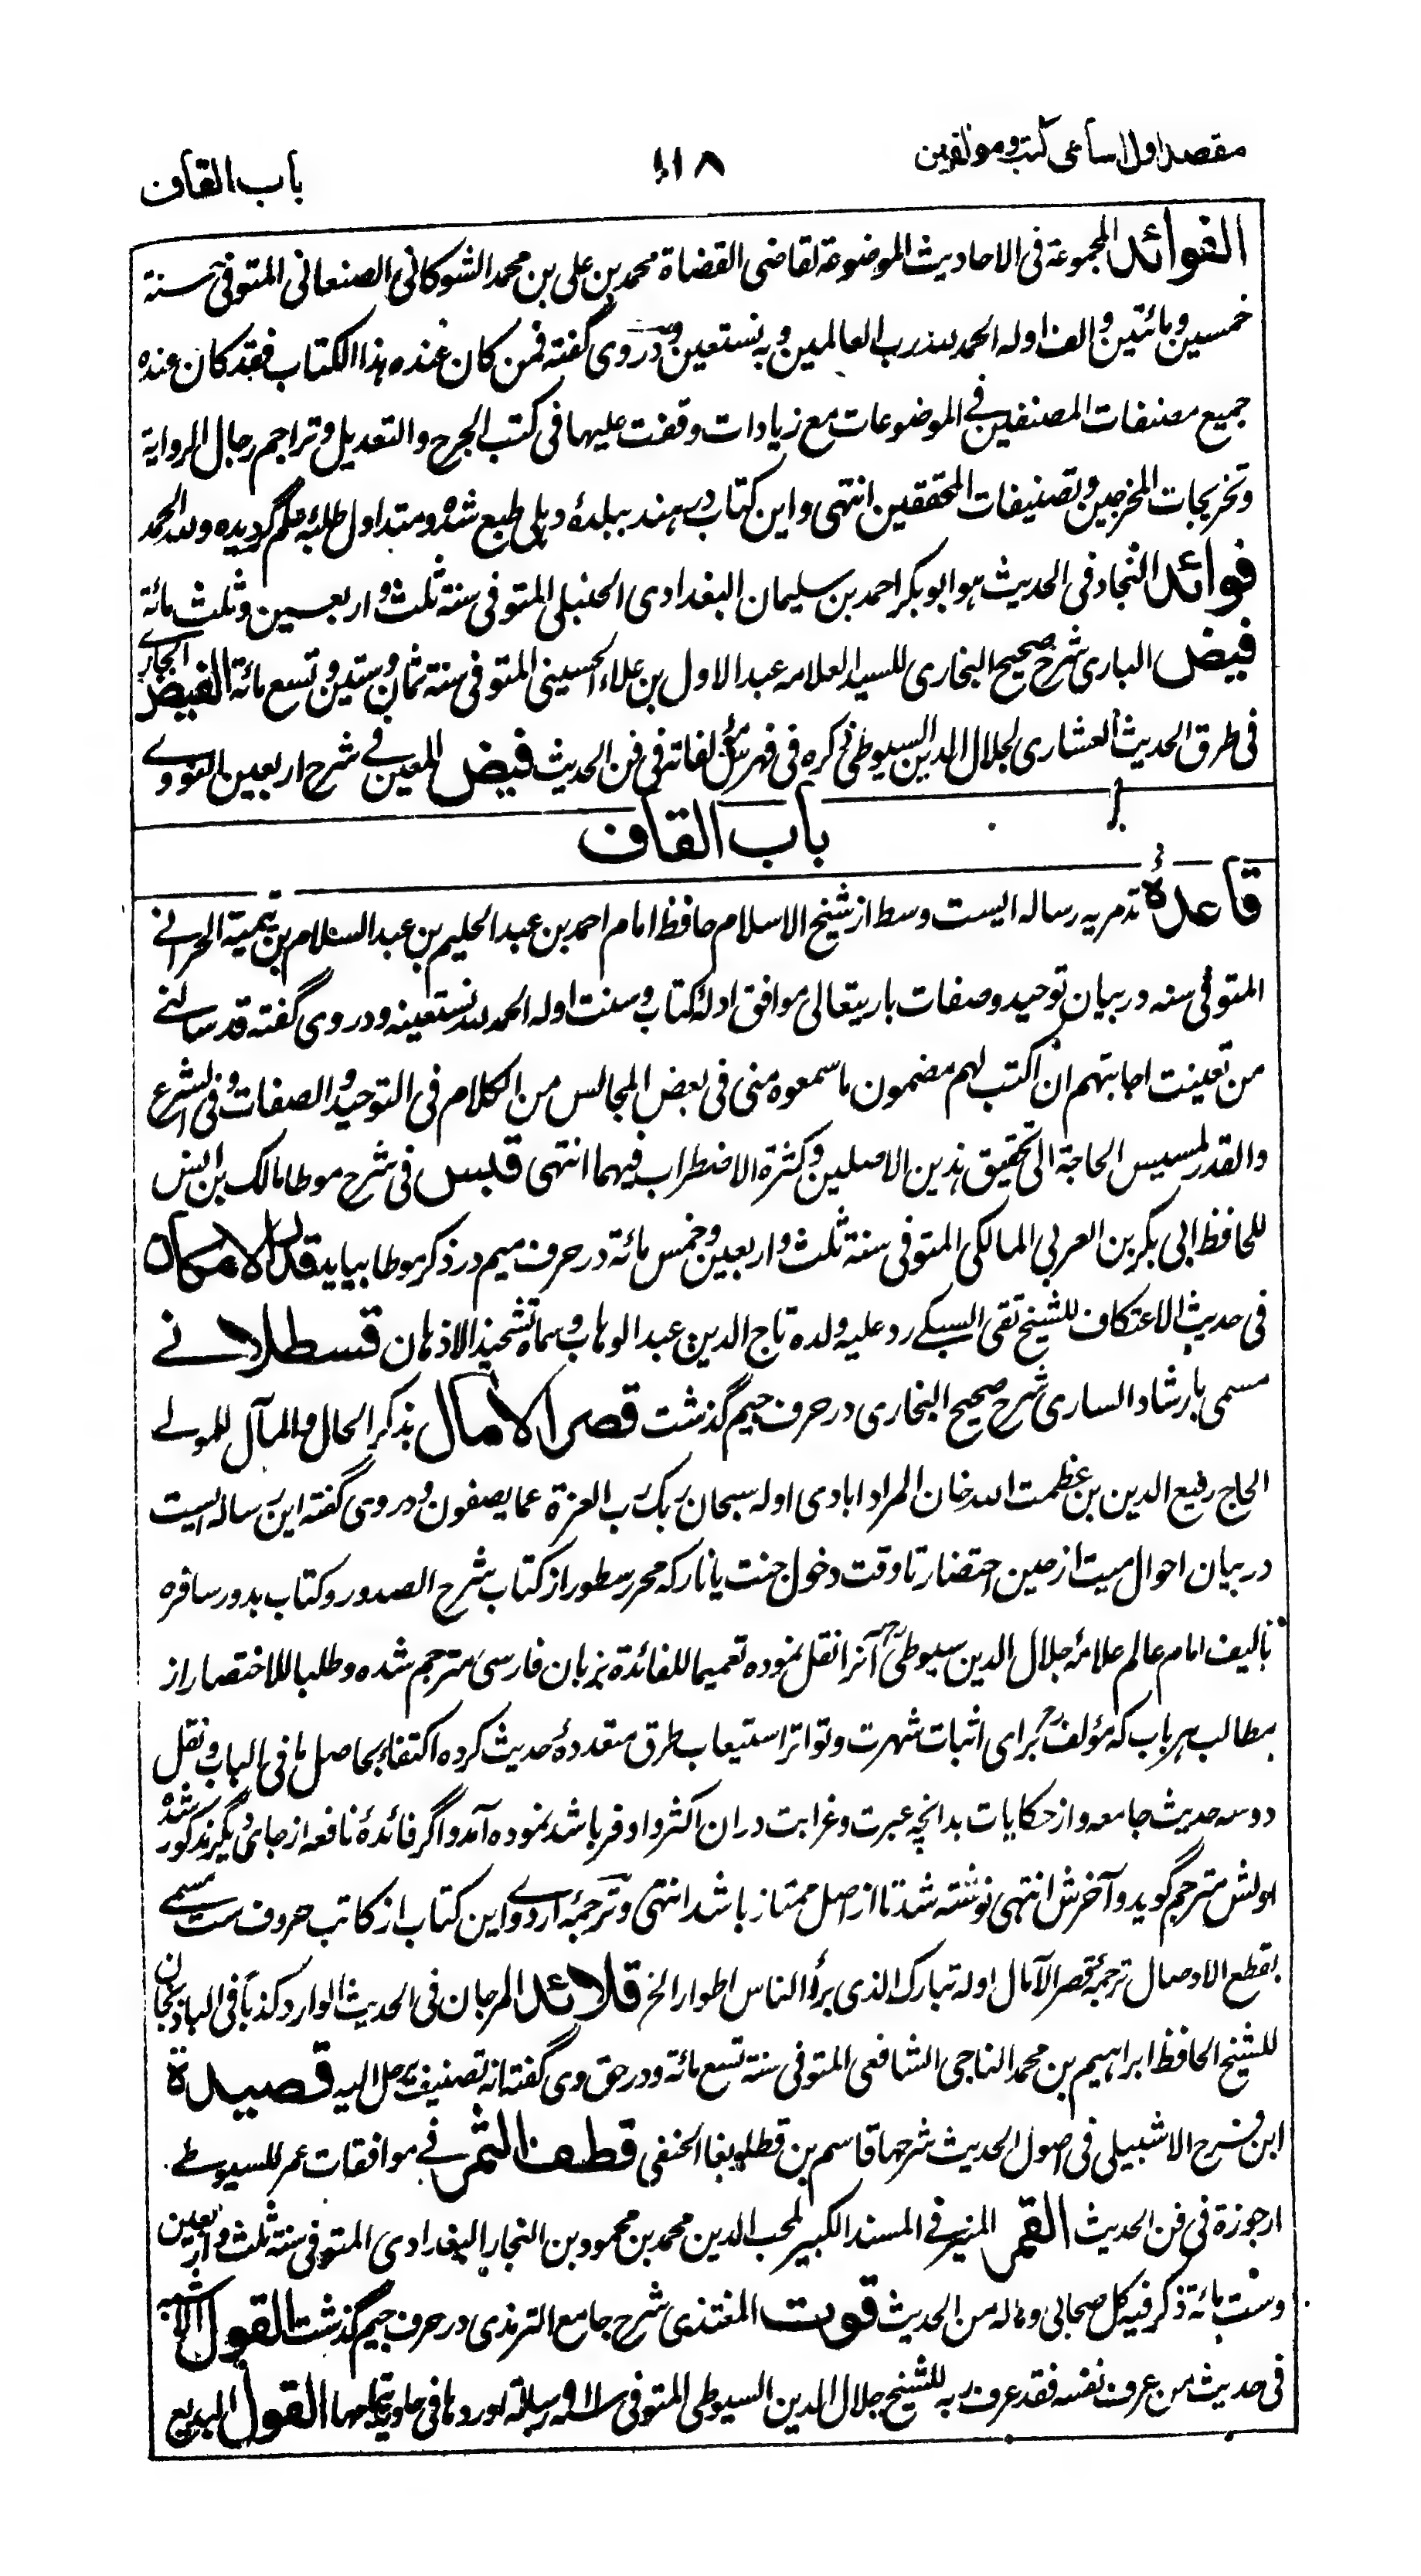 مقصد اول اسامی کتب و مولفین
۱۱۸
باب القاف
الفوائد المجموعة فی الاحادیث الموضوعة لقاضی القضاة محمد بن علی بن محمد الشوکانی الصنعانی المتوفی سنة
خمسین و مائتین و الف اوله الحمد لله رب العالمین و به نستعین و در وی گفته فمن کان عنده هذا الکتاب فقد کان عنده
جمیع مصنفات المصنفین فی الموضوعات مع زیادات وقفت علیها فی کتب الجرح و التعدیل و تراجم رجال الروایة
و تخریجات المخرجین و تصنیفات المحققین انتهی و این کتاب در هند ببلدۀ دهلی طبع شده و متداول طلبۀ علم گردیده ولله الحمد
فوائد النجاد فی الحدیث هو ابو بکر احمد بن سلیمان البغدادی الحنبلی المتوفی سنة ثلث و اربعین و ثلث مائة
فیض الباری شرح صحیح البخاری للسید العلامه عبد الاول بن علاء الحسینی المتوفی سنة ثمان و ستین و تسع مائة الفیض الجاری
فی طرق الحدیث العشاری لجلال الدین السیوطی ذکره فی فهرس مؤلفاته فی فن الحدیث فیض المعین فی شرح اربعین النووی
باب القاف
قاعدۀ تدمریه رساله ایست وسط از شیخ الاسلام حافظ امام احمد بن عبد الحلیم بن عبد السلام بن تیمیة الحرانی
المتوفی سنه در بیان توحید و صفات باریتعالی موافق ادلۀ کتاب و سنت اوله الحمد لله نستعینه و در وی گفته قد سألنی
من تعینت اجابتهم ان اکتب لهم مضمون ما سمعوه منی فی بعض المجالس من الکلام فی التوحید و الصفات و فی الشرع
والقدر لمسیس الحاجة الی تحقیق هذین الاصلین و کثرة الاضطراب فیهما انتهی قبس فی شرح موطا مالک بن انس
للحافظ ابی بکر بن العربی المالکی المتوفی سنة ثلث و اربعین و خمس مائة در حرف میم در ذکر موطا بیاید قدر الامکان
فی حدیث الاعتکاف للشیخ تقی السبکی رد علیه ولده تاج الدین عبد الوهاب و سماه تشحیذ الاذهان قسطلانی
مسمی بارشاد الساری شرح صحیح البخاری در حرف جیم گذشت قصر الامال بذکر الحال و المآل للمولی
الحاج رفیع الدین بن عظمت الله خان المرادابادی اوله سبحان ربک رب العزة عما یصفون و در وی گفته این رساله ایست
در بیان احوال میت از حین احتضار تا وقت دخول جنت یا نار که محرر سطور از کتاب شرح الصدور و کتاب بدور سافره
تالیف امام عالم علامه جلال الدین سیوطی رح آنرا نقل نموده تعمیما للفائدة بزبان فارسی مترجم شده و طلبا للاختصار از
مطالب هر باب که مؤلف رح برای اثبات شهرت و تواتر استیعاب طرق متعددۀ حدیث کرده اکتفاء بحاصل ما فی الباب و نقل
دو سه حدیث جامعه و از حکایات بدانچه عبرت و غرابت دران اکثر و اوفر باشد نموده آمد و اگر فائدۀ نافعه از جای دیگر مذکور شده
اولش مترجم گوید و آخرش انتهی نوشته شد تا از اصل ممتاز باشد انتهی و ترجمۀ اردوی این کتاب از کاتب حروف ست مسمی
بقطع الاوصال ترجمۀ قصر الآمال اوله تبارک الذی برؤ الناس اطوارا الخ قلائد المرجان فی الحدیث الوارد کذبا فی الباذنجان
للشیخ الحافظ ابراهیم بن محمد الناجی الشافعی المتوفی سنة تسع مائة و در حق وی گفته انه تصنیف یرحل الیه قصیدة
ابن فرح الاشبیلی فی اصول الحدیث شرحها قاسم بن قطلوبغا الحنفی قطف الثمر فی موافقات عمر للسیوطی
ارجوزة فی فن الحدیث القمر المنیر فی المسند الکبیر لمحب الدین محمد بن محمود بن النجار البغدادی المتوفی سنة ثلث و اربعین
و ست مائة ذکر فیه کل صحابی و ماله من الحدیث قوت المغتذی شرح جامع الترمذی در حرف جیم گذشت القول الاشبه
فی حدیث من عرف نفسه فقد عرف ربه للشیخ جلال الدین السیوطی المتوفی سنة ۹۱۱ رسالة اوردها فی حاویه بتمامها القول البدیع